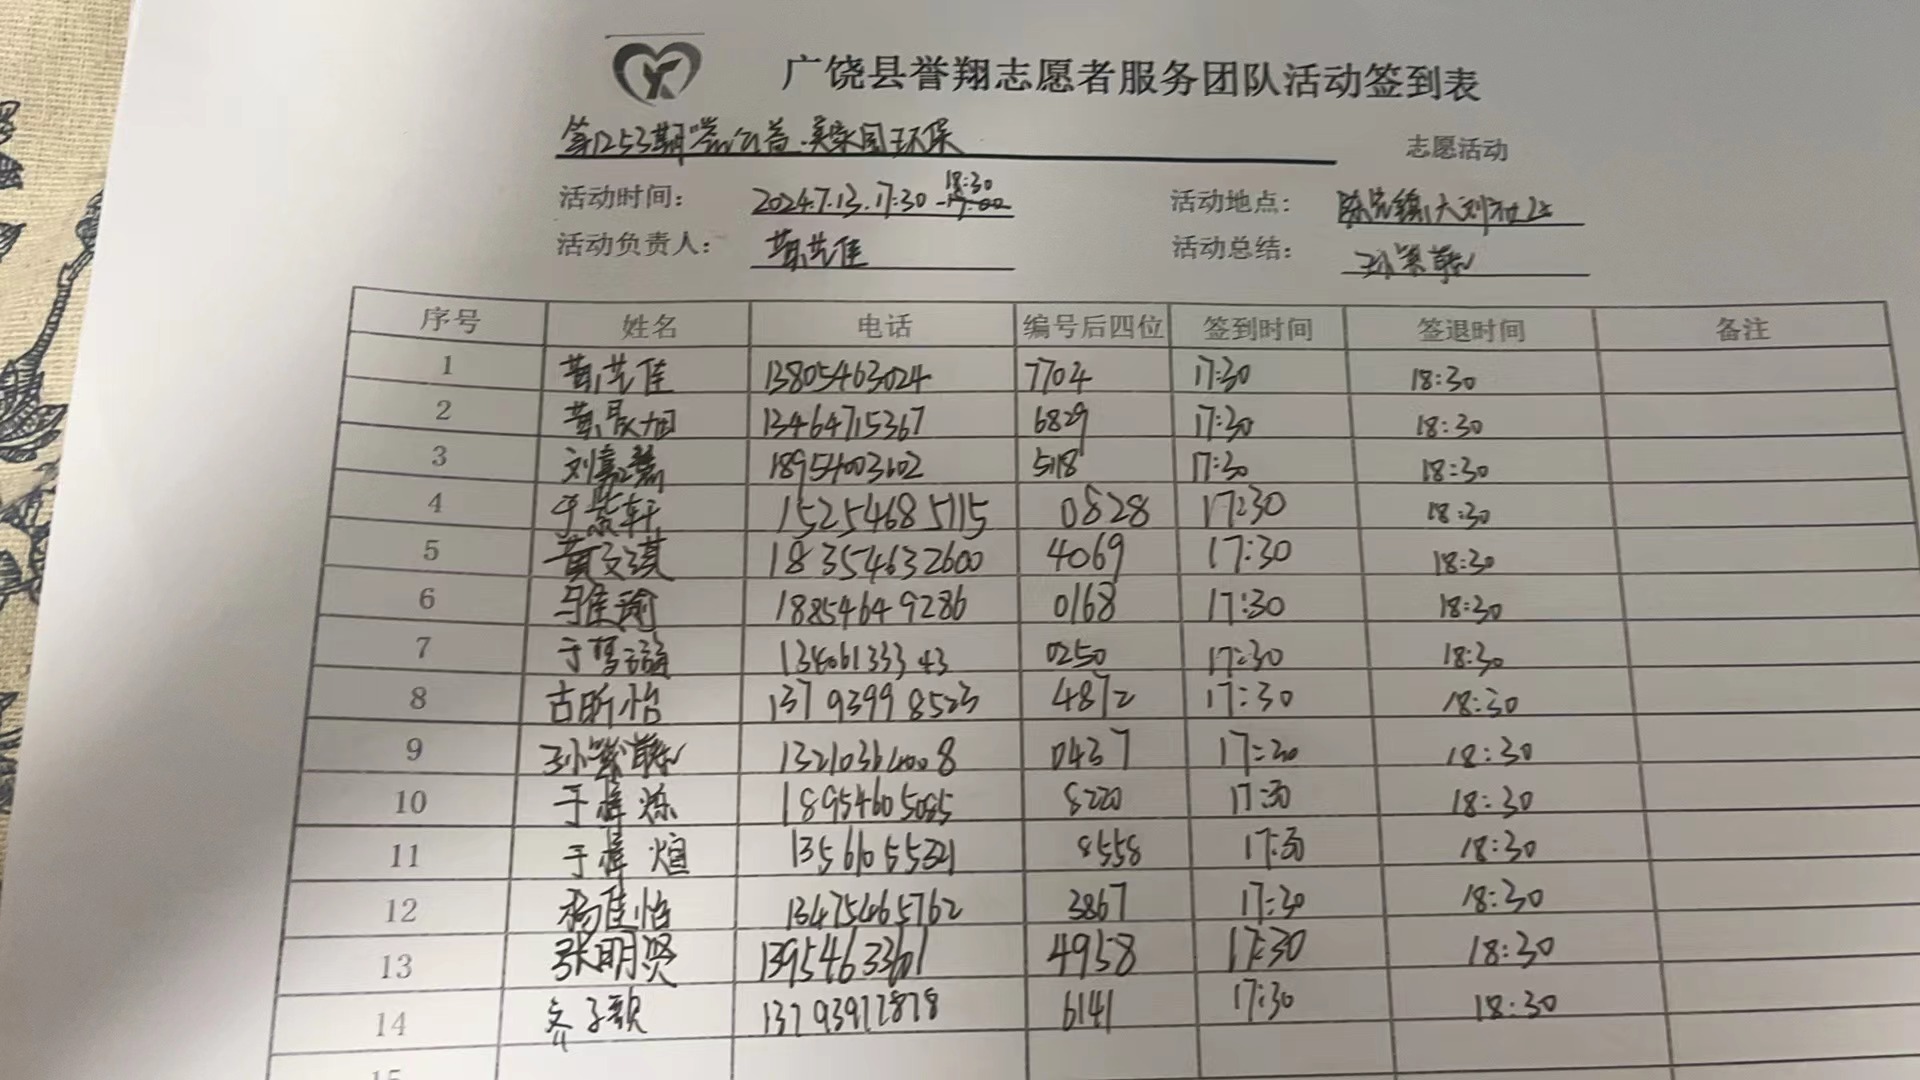 广饶县誉翔志愿者服务团队活动签到表
第1253期 公益·美家园环保 志愿活动
活动时间: 2024.7.13.17:30-18:30 活动地点: 陈官镇大刘村
活动负责人: 黄艺佳 活动总结:
序号 姓名 电话 编号后四位 签到时间 签退时间 备注
1 黄艺佳 13805463024 7704 17:30 18:30
2 黄晟旭 13464715367 6829 17:30 18:30
3 刘嘉慧 18954003602 5118 17:30 18:30
4 李紫轩 15254685115 0828 17:30 18:30
5 黄文琪 183554632600 4069 17:30 18:30
6 马佳瑜 18854649286 0168 17:30 18:30
7 于梦涵 13406133343 0250 17:30 18:30
8 古昕怡 13793998523 4872 17:30 18:30
9 13210364008 0437 17:30 18:30
10 于梓烁 18954605085 8220 17:30 18:30
11 于梓煊 8558 17:30 18:30
12 杨佳怡 13475465762 3867 17:30 18:30
13 张明贤 13954633601 4958 17:30 18:30
14 齐子歌 13793917878 6141 17:30 18:30
15